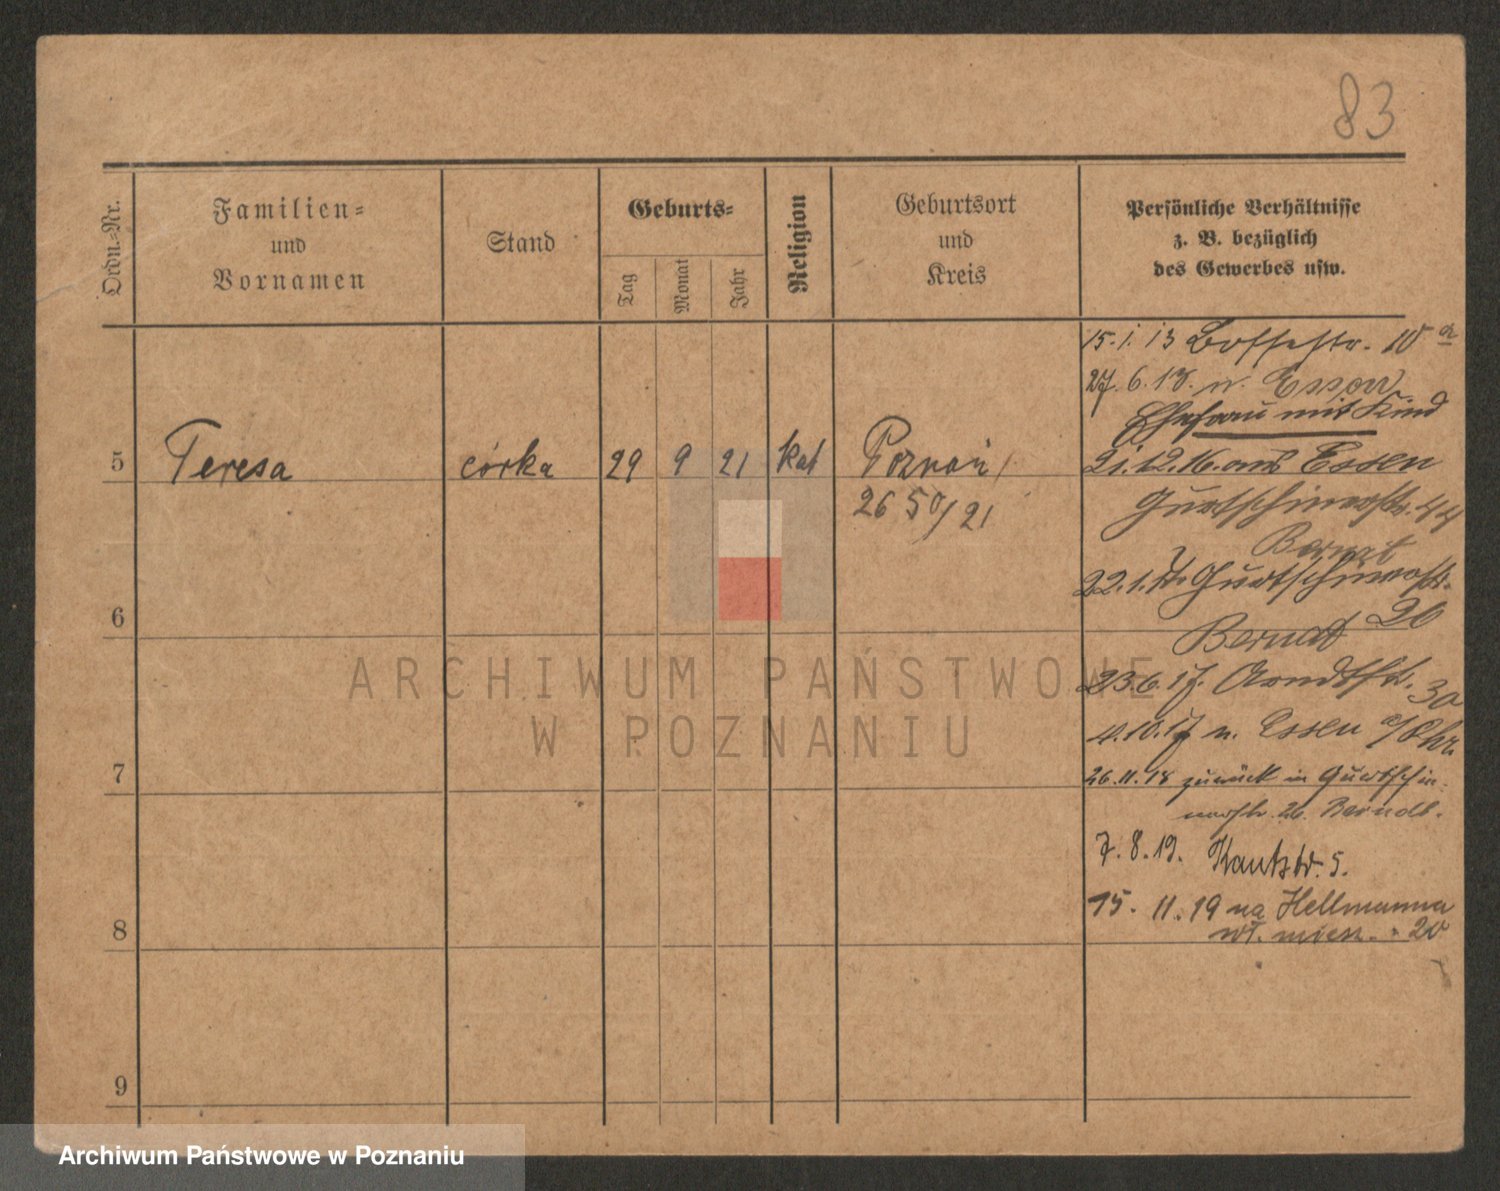 83
Ordn.-Nr.
Familien-
und
Vornamen
Stand
Geburts-
Tag
Monat
Jahr
Religion
Geburtsort
und
Kreis
Persönliche Verhältnisse
z. B. bezüglich
des Gewerbes usw.
15. 1. 13 Bossestr. 10 a
27. 6. 13. n. Essen
Ehefrau mit Kind
5 Teresa córka 29 9 21 kat Poznań
26 50/21
21. 12. 16. aus Essen
Gurtschinerstr. 44
Bernat
22. 1. 17 Gurtschinerstr.
20
Bernat
6
23. 6. 17. Arndtstr. 30
4. 10. 17 n. Essen a/Ruhr.
26. 11. 18 zurück in Gurtschin-
7
26. Berndt.
7. 8. 19. Kantstr. 5.
15. 11. 19 na Hellmanna
20
8
9
ARCHIWUM PAŃSTWOWE
W POZNANIU
Archiwum Państwowe w Poznaniu